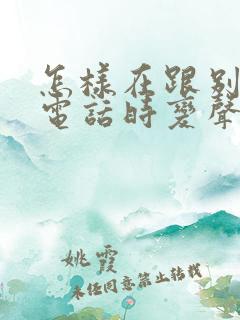 怎樣在跟別
電話時變聲
姚霞
未任同意禁止转载